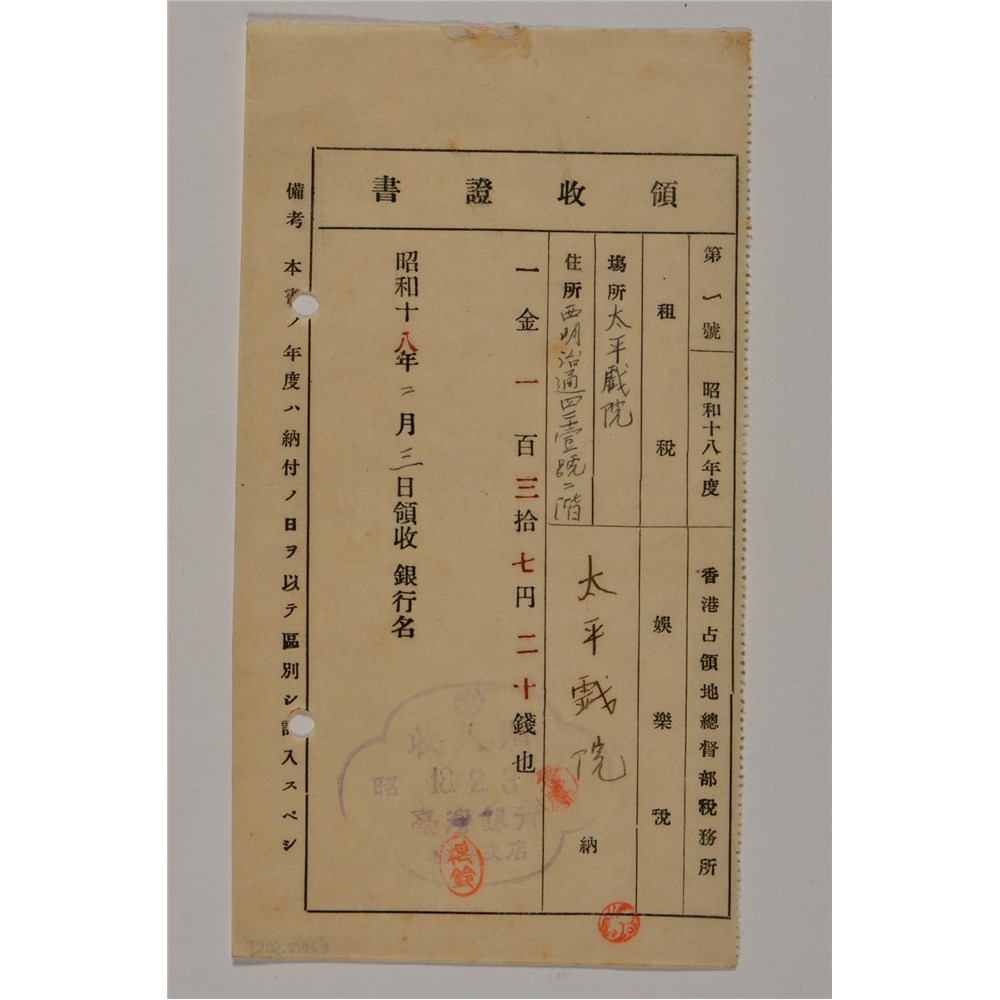 領收證書
第一號 昭和十八年度 香港占領地總督部稅務所
租稅 娛樂稅
場所 太平戲院
住所 西明治通四壹號二階
太平戲院 納
一金一百三拾七円二十錢也
昭和十八年二月三日領收 銀行名
備考 本書ノ年度ハ納付ノ日ヲ以テ區別シ記入スベシ
收入
昭 18.2.3
臺灣銀行
支店